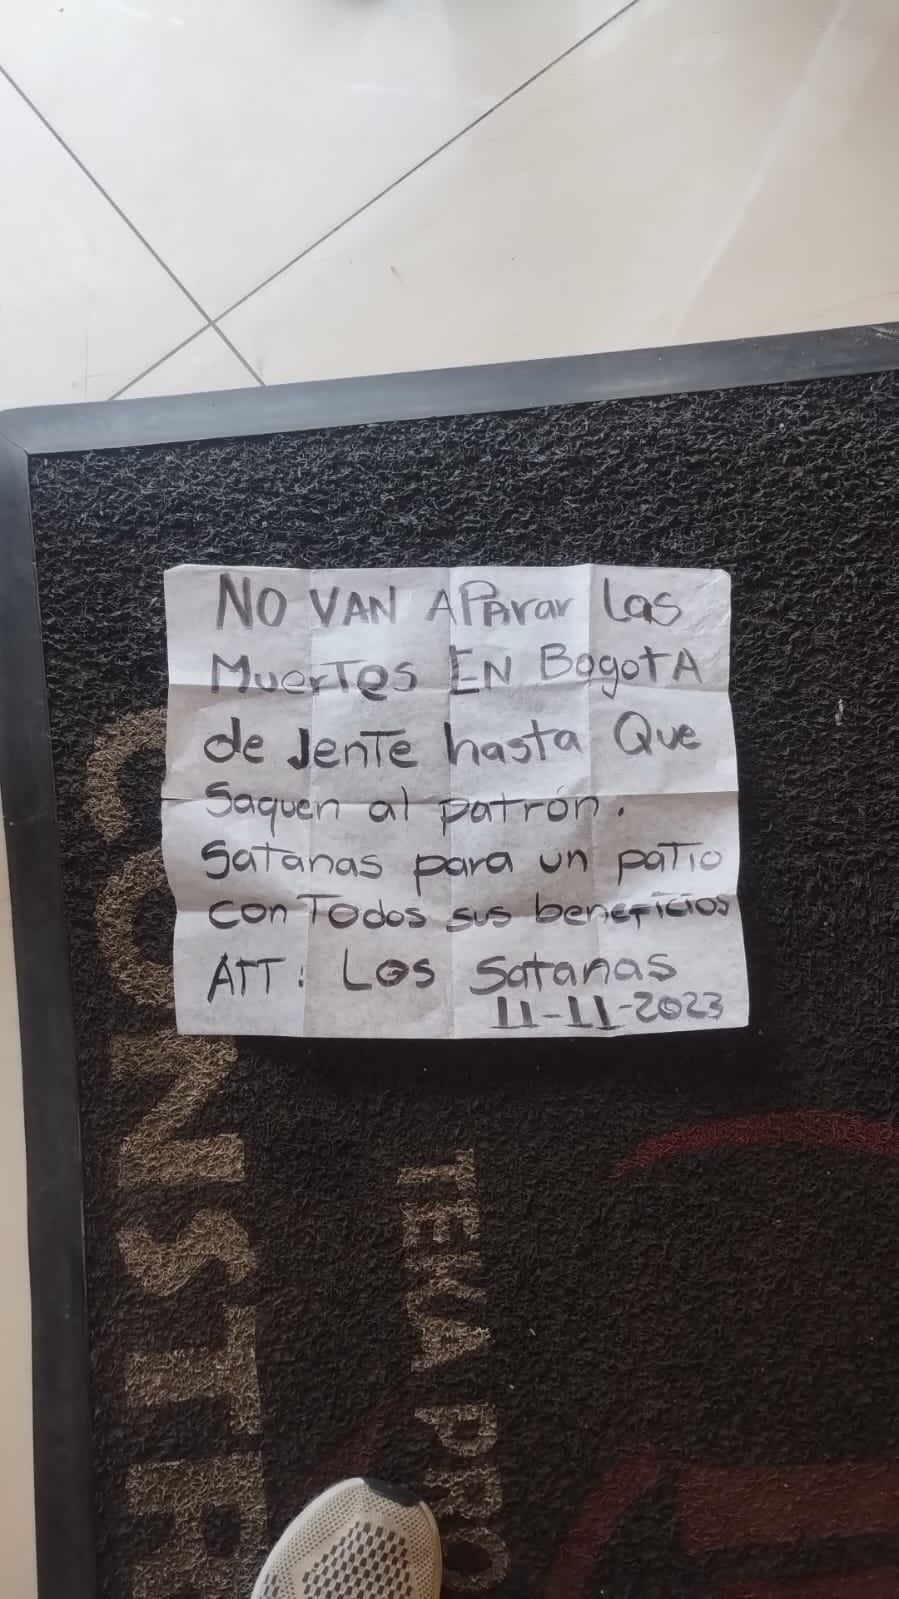 NO VAN APArar Las
MuerTes EN BogotA
de JenTe hasta Que
Saquen al patrón.
Satanas para un patio
con Todos sus beneficios
ATT: Los Satanas
11-11-2023
CONSTR
TENGA PRO